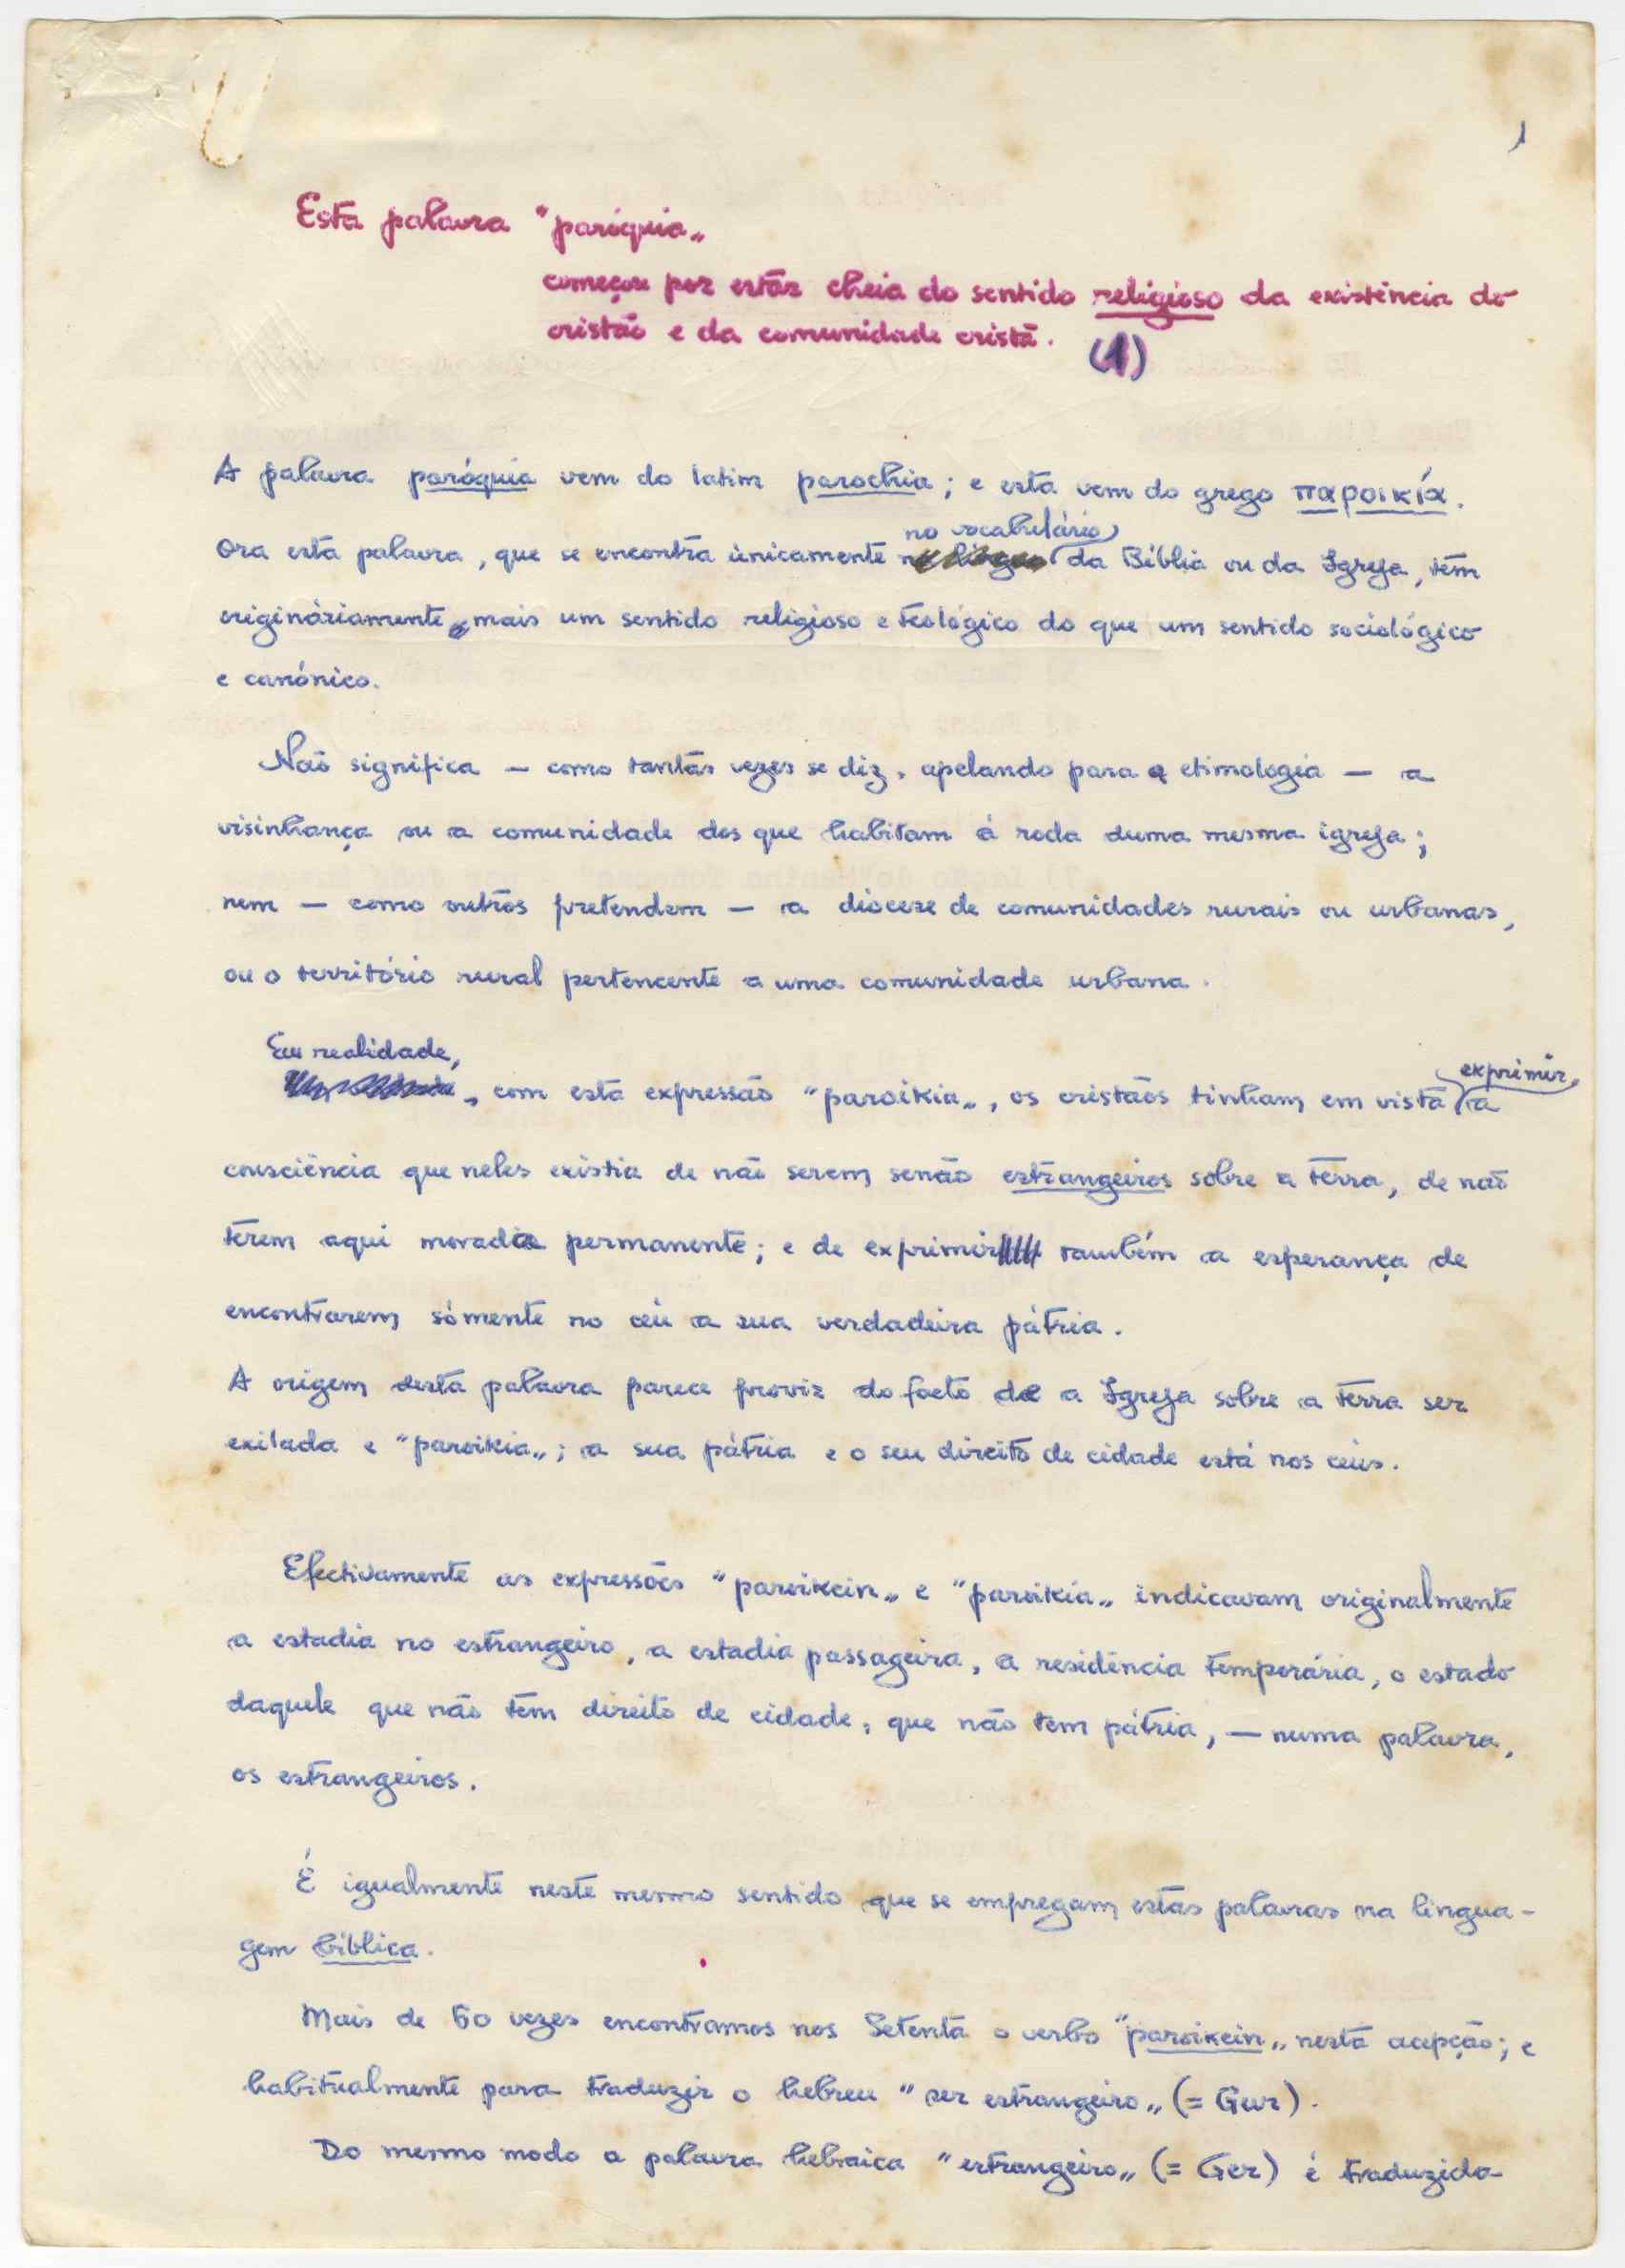 1
Esta palavra "paróquia„
começou por estar cheia do sentido religioso da existência do
cristão e da comunidade cristã. (1)
A palavra paróquia vem do latim parochia; e esta vem do grego παροικία.
no vocabulário
Ora esta palavra, que se encontra ùnicamente da Bíblia ou da Igreja, têm
originàriamente mais um sentido religioso e teológico do que um sentido sociológico
e canónico.
Não significa — como tantas vezes se diz, apelando para a etimologia — a
visinhança ou a comunidade dos que habitam á roda duma mesma igreja;
nem — como outros pretendem — a diocese de comunidades rurais ou urbanas,
ou o território rural pertencente a uma comunidade urbana.
Em realidade,
exprimir
, com esta expressão "paroikia„, os cristãos tinham em vista a
consciência que neles existia de não serem senão estrangeiros sobre a terra, de não
terem aqui morada permanente; e de exprimir também a esperança de
encontrarem sòmente no céu a sua verdadeira pátria.
A origem desta palavra parece provir do facto de a Igreja sobre a terra ser
exilada e "paroikia„; a sua pátria e o seu direito de cidade está nos céus.
Efectivamente as expressões "paroikein„ e "paroikia„ indicavam originalmente
a estadia no estrangeiro, a estadia passageira, a residência temporária, o estado
daquele que não têm direito de cidade, que não tem pátria, — numa palavra,
os estrangeiros.
É igualmente neste mesmo sentido que se empregam estas palavras na lingua-
gem bíblica.
Mais de 60 vezes encontramos nos Setenta o verbo "paroikein„ nesta acepção; e
habitualmente para traduzir o hebreu "ser estrangeiro„ (= Gur).
Do mesmo modo a palavra hebraica "estrangeiro„ (= Ger) é traduzida